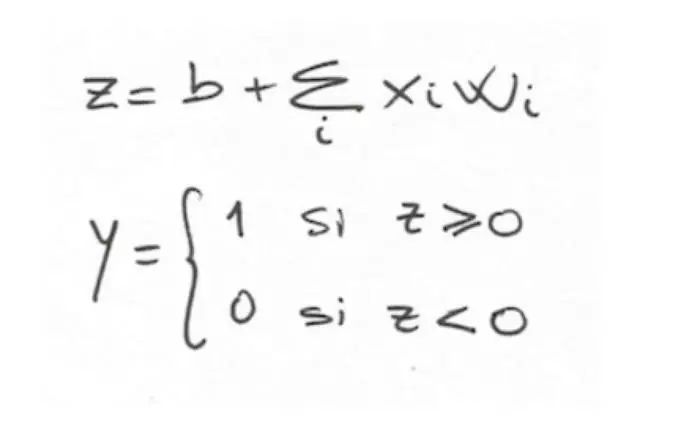 z = b + ∑ᵢ xᵢ wᵢ
y = { 1 si z ≥ 0
0 si z < 0